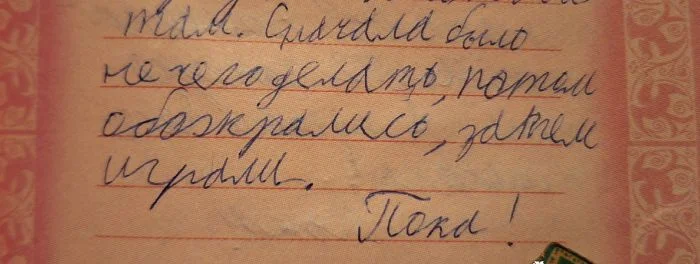 там. Сначала было
нечего делать, потом
обожрались, затем
играли.
Пока!